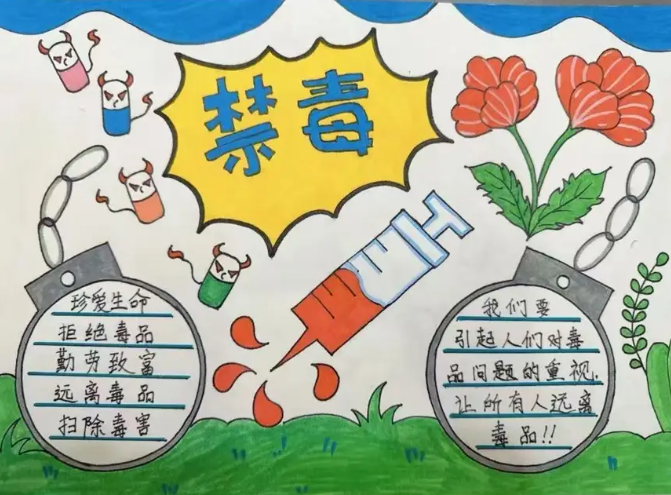 禁毒
珍爱生命
拒绝毒品
勤劳致富
远离毒品
扫除毒害
我们要
引起人们对毒
品问题的重视.
让所有人远离
毒品!!